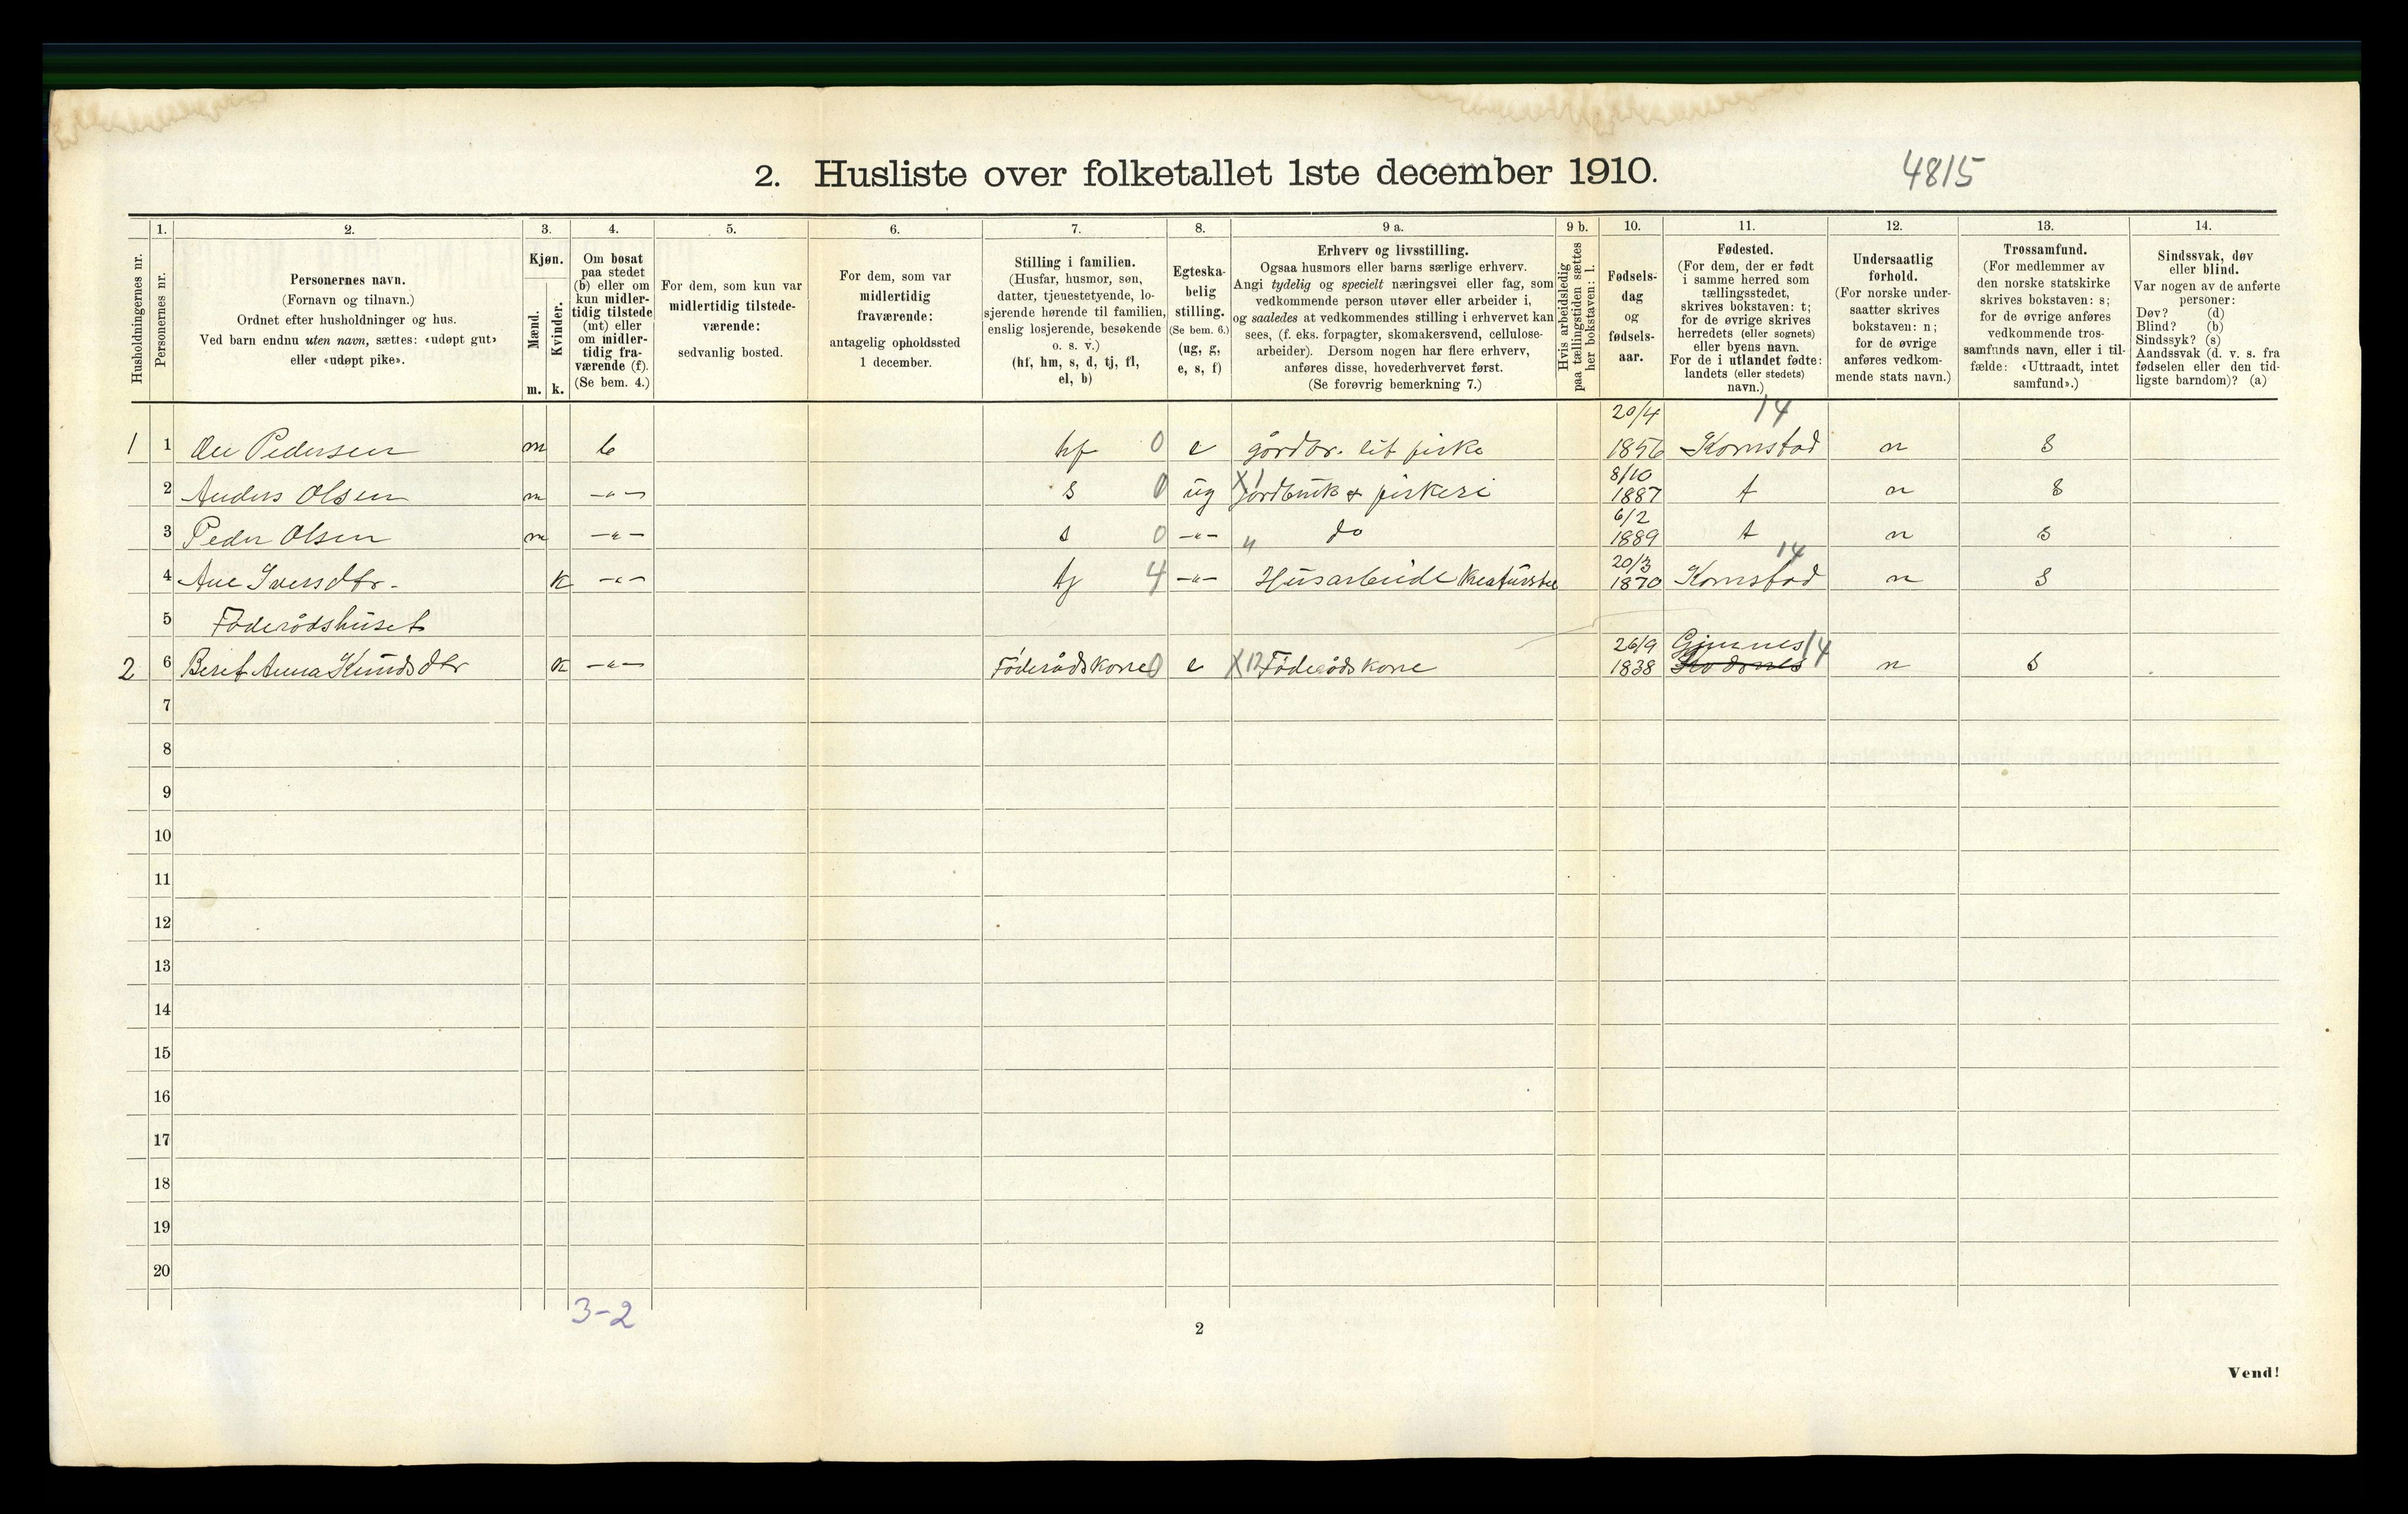 2. Husliste over folketallet 1ste december 1910.
4815
Husholdningernes nr.
1.
Personernes nr.
2.
Personernes navn.
(Fornavn og tilnavn.)
Ordnet efter husholdninger og hus.
Ved barn endnu uten navn, sættes: «udøpt gut»
eller «udøpt pike».
3.
Kjøn.
Mænd.
Kvinder.
m. k.
4.
Om bosat
paa stedet
(b) eller om
kun midler-
tidig tilstede
(mt) eller
om midler-
tidig fra-
værende (f).
(Se bem. 4.)
5.
For dem, som kun var
midlertidig tilstede-
værende:
sedvanlig bosted.
6.
For dem, som var
midlertidig
fraværende:
antagelig opholdssted
1 december.
7.
Stilling i familien.
(Husfar, husmor, søn,
datter, tjenestetyende, lo-
sjerende hørende til familien,
enslig losjerende, besøkende
o. s. v.)
(hf, hm, s, d, tj, fl,
el, b)
8.
Egteska-
belig
stilling.
(Se bem. 6.)
(ug, g,
e, s, f)
9 a.
Erhverv og livsstilling.
Ogsaa husmors eller barns særlige erhverv.
Angi tydelig og specielt næringsvei eller fag, som
vedkommende person utøver eller arbeider i,
og saaledes at vedkommendes stilling i erhvervet kan
sees, (f. eks. forpagter, skomakersvend, cellulose-
arbeider). Dersom nogen har flere erhverv,
anføres disse, hovederhvervet først.
(Se forøvrig bemerkning 7.)
9 b.
Hvis arbeidsledig
paa tællingstiden sættes
her bokstaven: l.
10.
Fødsels-
dag
og
fødsels-
aar.
11.
Fødested.
(For dem, der er født
i samme herred som
tællingsstedet,
skrives bokstaven: t;
for de øvrige skrives
herredets (eller sognets)
eller byens navn.
For de i utlandet fødte:
landets (eller stedets)
navn.)
12.
Undersaatlig
forhold.
(For norske under-
saatter skrives
bokstaven: n;
for de øvrige
anføres vedkom-
mende stats navn.)
13.
Trossamfund.
(For medlemmer av
den norske statskirke
skrives bokstaven: s;
for de øvrige anføres
vedkommende tros-
samfunds navn, eller i til-
fælde: «Uttraadt, intet
samfund».)
14.
Sindssvak, døv
eller blind.
Var nogen av de anførte
personer:
Døv? (d)
Blind? (b)
Sindssyk? (s)
Aandssvak (d. v. s. fra
fødselen eller den tid-
ligste barndom)? (a)
1 1 Ole Pedersen m b hf 0 e gårdbr. lit fiske 20/4 1856 Kornstad 14 n S
2 Anders Olsen m -"- s 0 ug X1 jordbruk & fiskeri 8/10 1887 t n S
3 Peder Olsen m -"- s 0 -"- " do 6/2 1889 t n S
4 Ane Iversdtr. k -"- tj 4 -"- Husarbeide Kreaturstel 20/3 1870 Kornstad 14 n S
5 Föderådshuset
2 6 Beret Anna Knudsdtr k -"- Föderådskone 0 e X12 Föderådskone 26/9 1838 Gjemnes 14 n S
7
8
9
10
11
12
13
14
15
16
17
18
19
20
3-2
2
Vend!